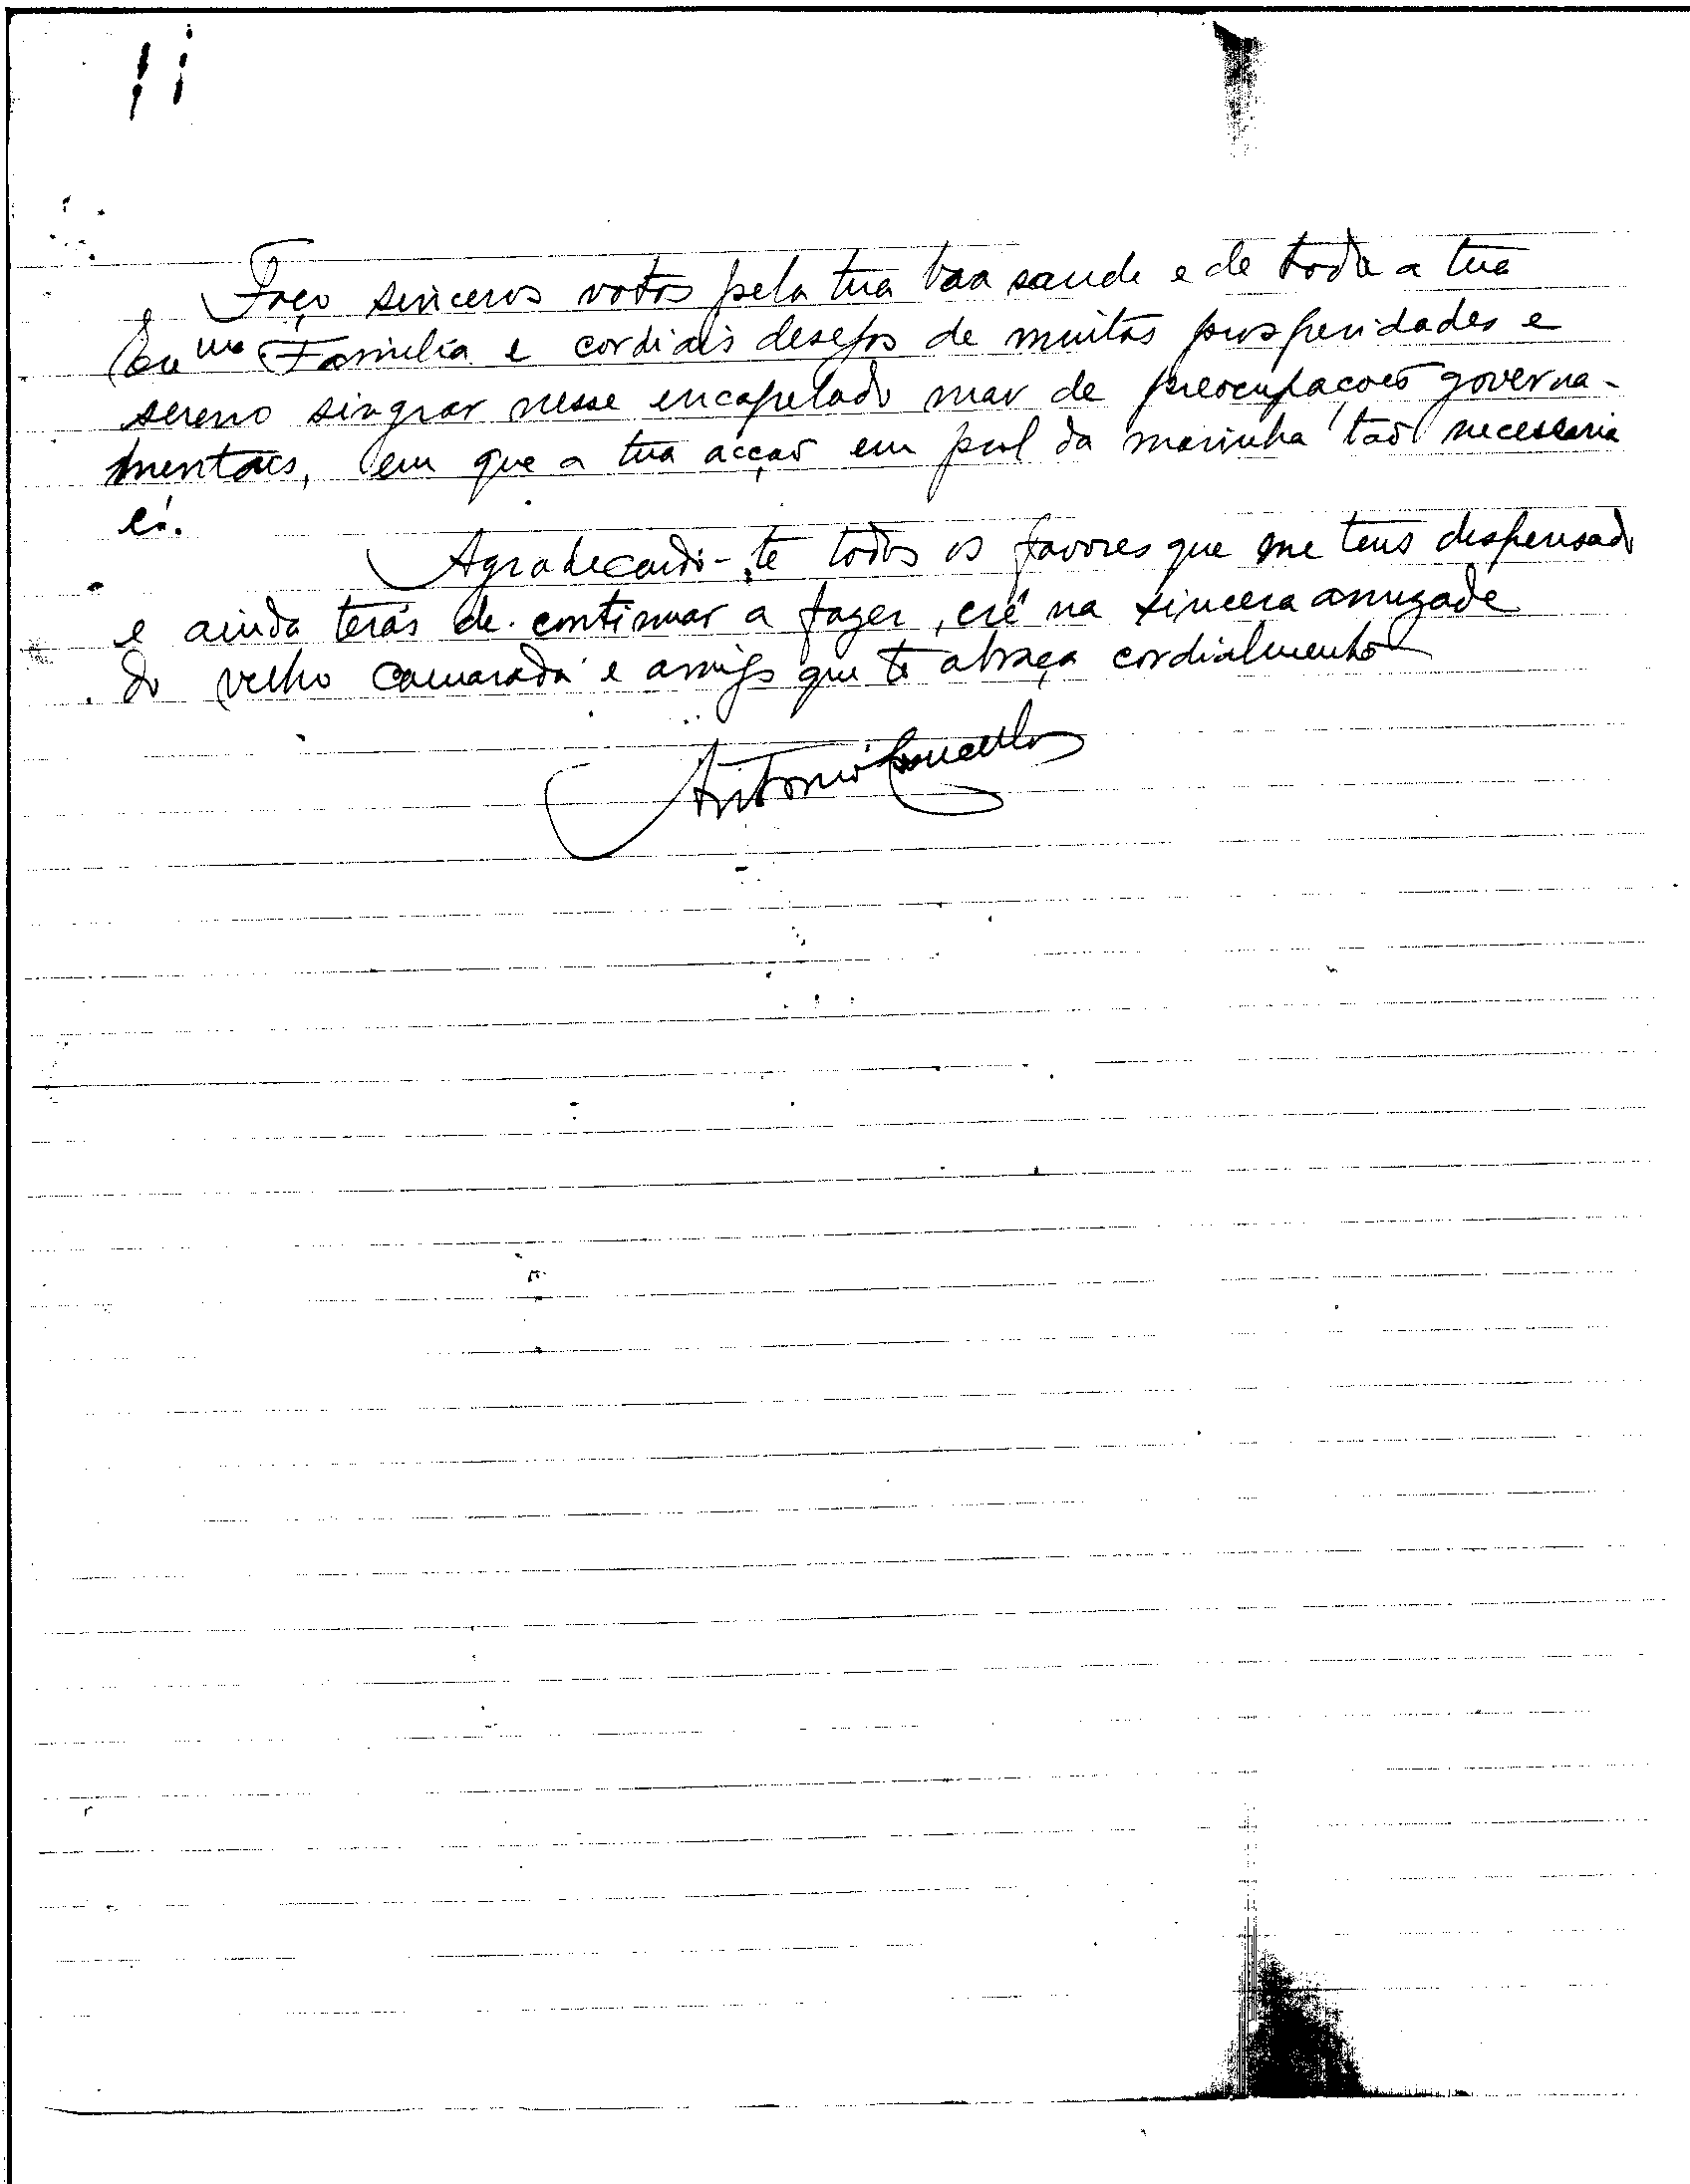 Faço sinceros votos pela tua boa saude e de toda a tua
Ex.ma Familia e cordiais desejos de muitas prosperidades e
sereno singrar nesse encapelado mar de preocupações governa-
mentais, em que a tua acção em prol da marinha tão necessaria
é.
Agradecendo-te todos os favores que me tens dispensado
e ainda terás de continuar a fazer, crê na sincera amizade
do velho camarada e amigo que te abraça cordialmente
Antonio